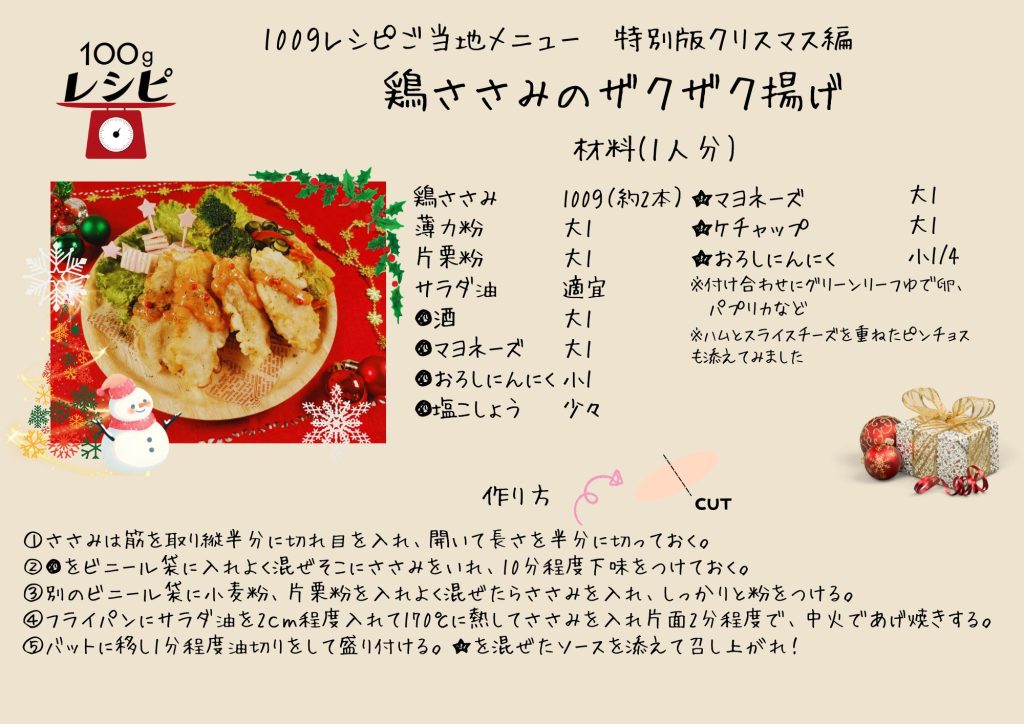 100g
レシピ
100gレシピご当地メニュー　特別版クリスマス編
鶏ささみのザクザク揚げ
材料(1人分)
鶏ささみ　100g(約2本)
薄力粉　大1
片栗粉　大1
サラダ油　適宜
●酒　大1
●マヨネーズ　大1
●おろしにんにく　小1
●塩こしょう　少々
★マヨネーズ　大1
★ケチャップ　大1
★おろしにんにく　小1/4
※付け合わせにグリーンリーフゆで卵、
パプリカなど
※ハムとスライスチーズを重ねたピンチョス
も添えてみました
作り方
CUT
①ささみは筋を取り縦半分に切れ目を入れ、開いて長さを半分に切っておく。
②●をビニール袋に入れよく混ぜそこにささみをいれ、10分程度下味をつけておく。
③別のビニール袋に小麦粉、片栗粉を入れよく混ぜたらささみを入れ、しっかりと粉をつける。
④フライパンにサラダ油を2cm程度入れて170℃に熱してささみを入れ片面2分程度で、中火であげ焼きする。
⑤バットに移し1分程度油切りをして盛り付ける。★を混ぜたソースを添えて召し上がれ!